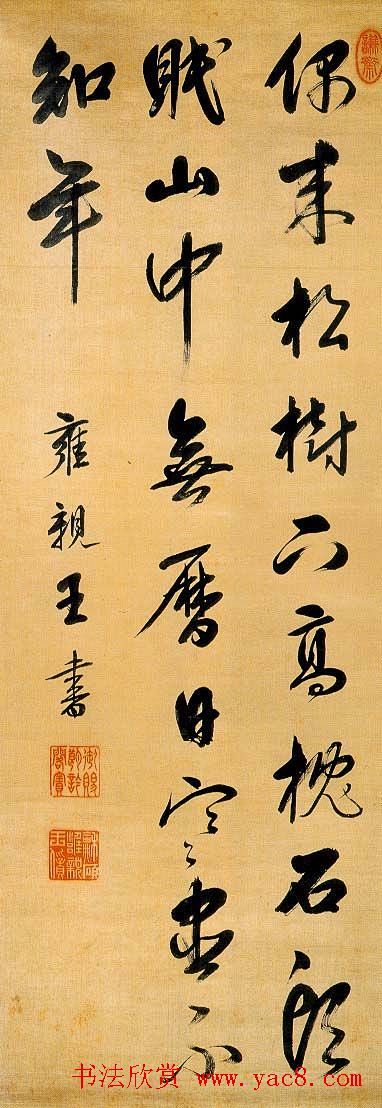 偶来松樹下高枕石頭
眠山中無曆日寒盡不
知年
雍親王書
御賜朗吟閣寶
书法欣赏 www.yac8.com